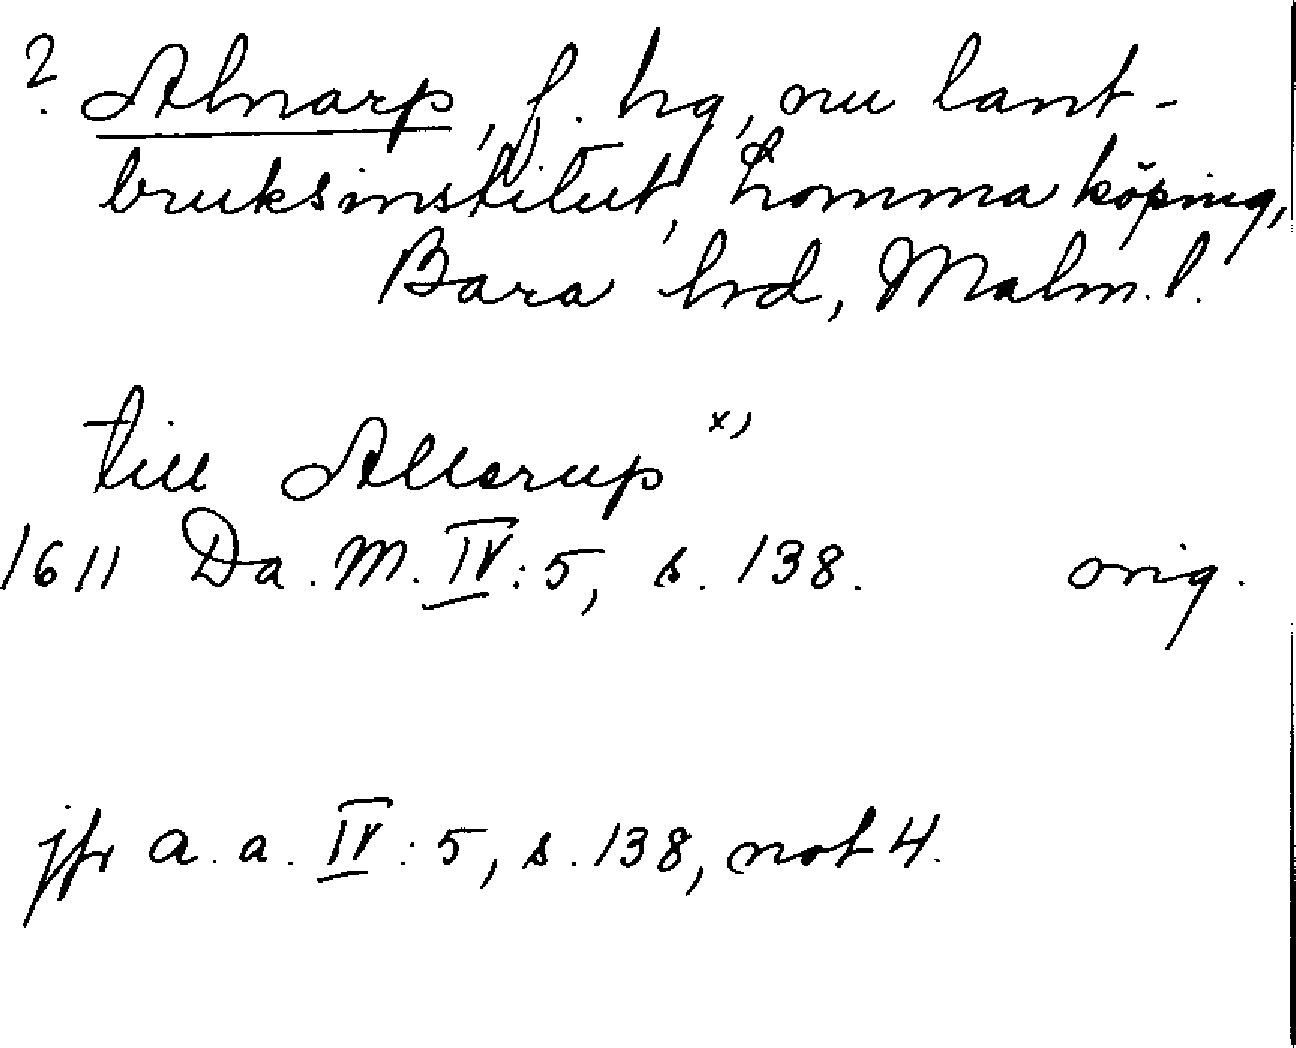 ? Alnarp, f. hg, nu lant-
bruksinstitut, Lomma köping,
Bara hrd, Malm. l.
till Allerup x)
1611 Da. M. IV:5, s. 138. orig.
jfr a. a. IV:5, s. 138, not 4.